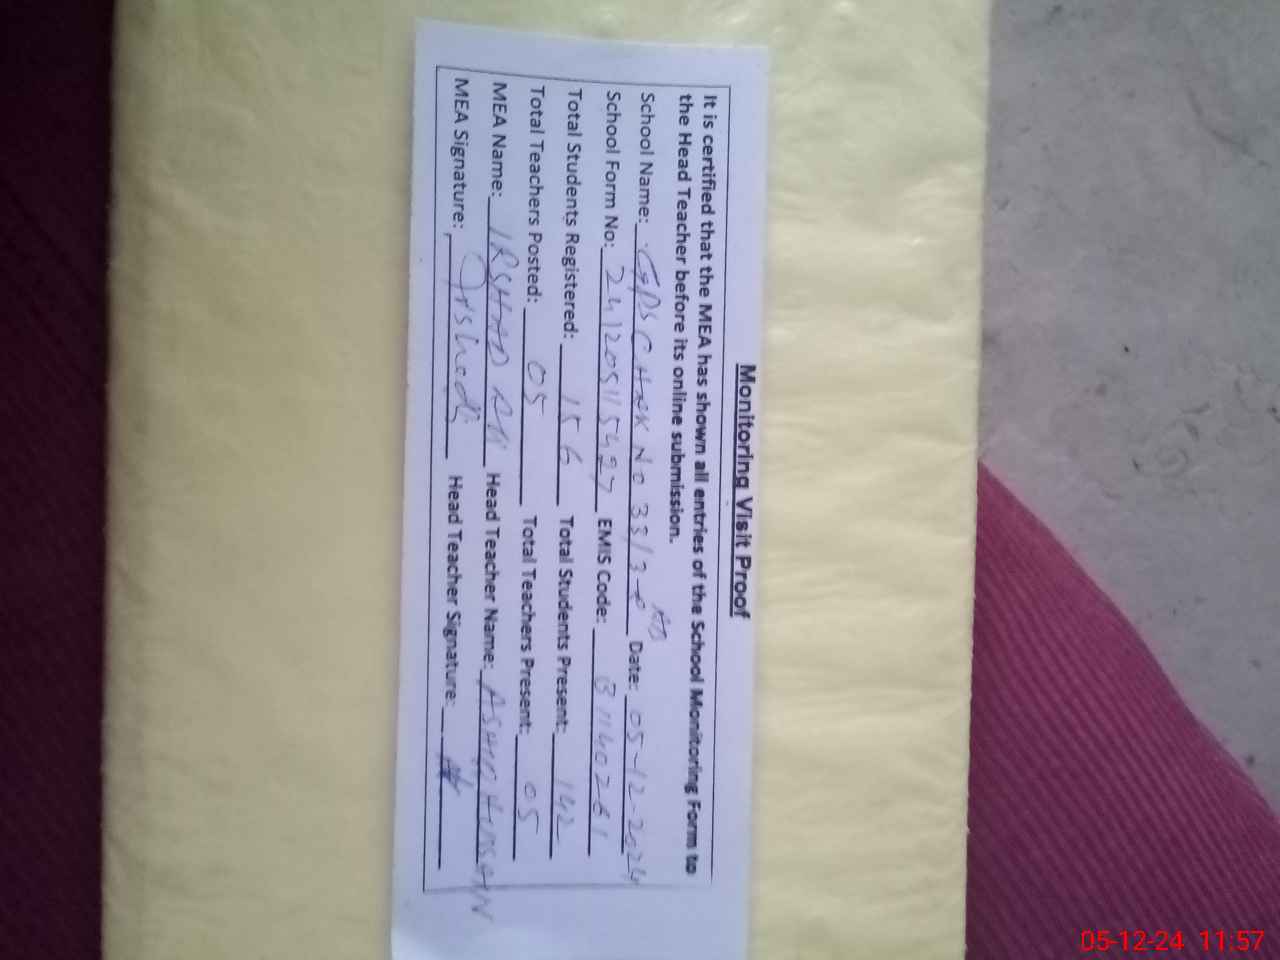 Monitoring Visit Proof
It is certified that the MEA has shown all entries of the School Monitoring Form to
the Head Teacher before its online submission.
School Name: GPS CHAK NO 33/3-R Date: 05-12-2024
School Form No: 241205115497 EMIS Code: 31140261
Total Students Registered: 156 Total Students Present: 142
Total Teachers Posted: 05 Total Teachers Present: 05
MEA Name: IRSHAD ALI Head Teacher Name: HUSSAIN
MEA Signature: Irshad Head Teacher Signature:
05-12-24 11:57